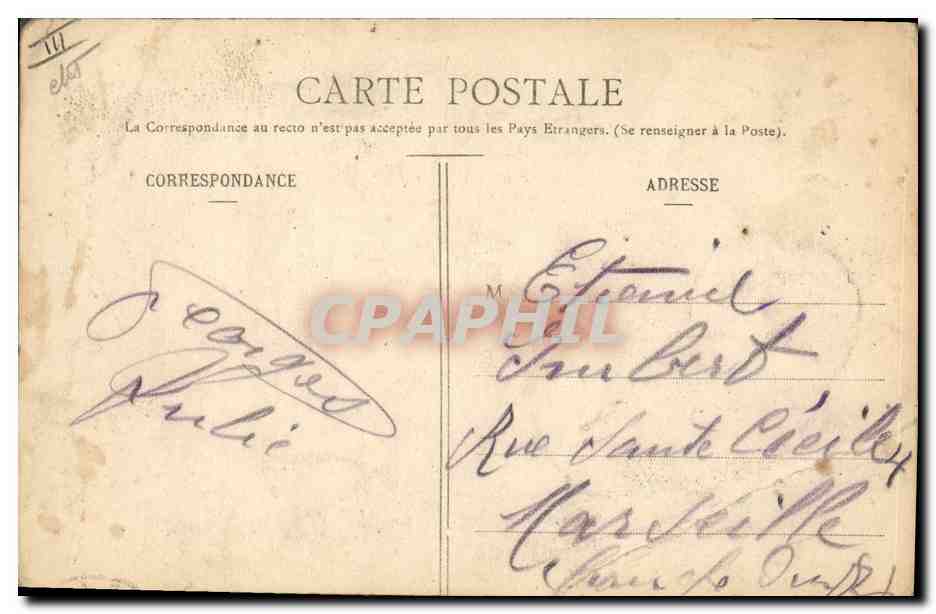 III
CARTE POSTALE
La Correspondance au recto n'est pas acceptée par tous les Pays Etrangers. (Se renseigner à la Poste).
CORRESPONDANCE
ADRESSE
Georges
Julie
M
Imbert
Rue Sainte Cécile
Marseille
CPAPHIL